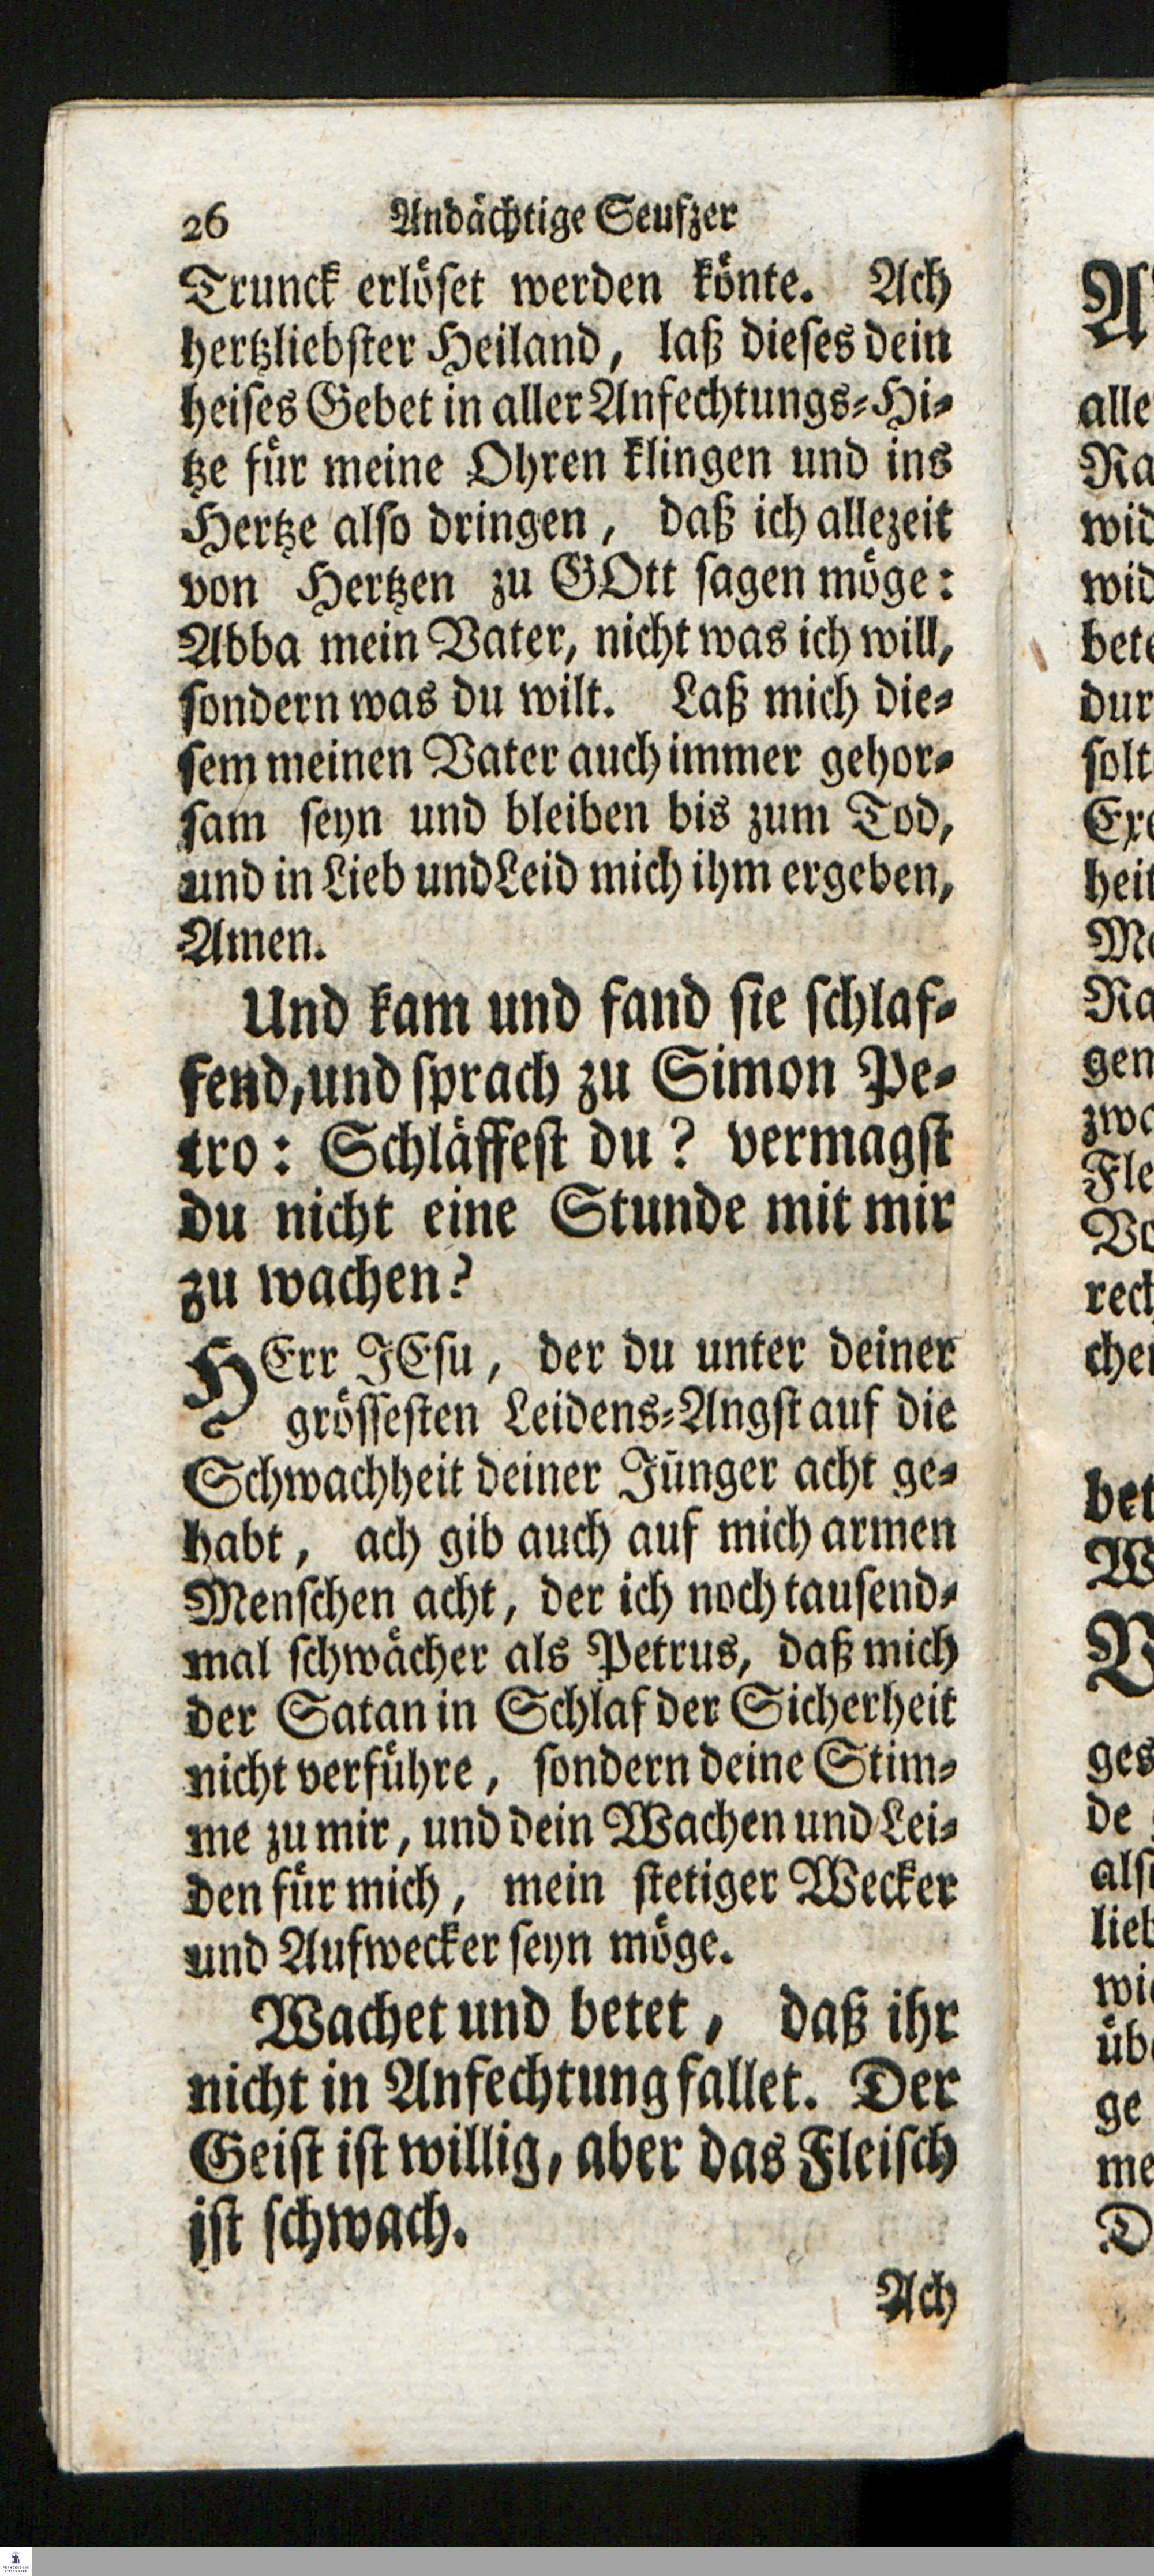 26 Andächtige Seufzer
Trunck erlöset werden könte. Ach
hertzliebster Heiland, laß dieses dein
heises Gebet in aller Anfechtungs-Hi-
tze für meine Ohren klingen und ins
Hertze also dringen, daß ich allezeit
von Hertzen zu GOtt sagen möge:
Abba mein Vater, nicht was ich will,
sondern was du wilt. Laß mich die-
sem meinen Vater auch immer gehor-
sam seyn und bleiben bis zum Tod,
und in Lieb und Leid mich ihm ergeben,
Amen.
Und kam und fand sie schlaf-
fend, und sprach zu Simon Pe-
tro: Schläffest du? vermagst
du nicht eine Stunde mit mir
zu wachen?
HErr JEsu, der du unter deiner
grössesten Leidens-Angst auf die
Schwachheit deiner Jünger acht ge-
habt, ach gib auch auf mich armen
Menschen acht, der ich noch tausend-
mal schwächer als Petrus, daß mich
der Satan in Schlaf der Sicherheit
nicht verführe, sondern deine Stim-
me zu mir, und dein Wachen und Lei-
den für mich, mein stetiger Wecker
und Aufwecker seyn möge.
Wachet und betet, daß ihr
nicht in Anfechtung fallet. Der
Geist ist willig, aber das Fleisch
ist schwach.
Ach